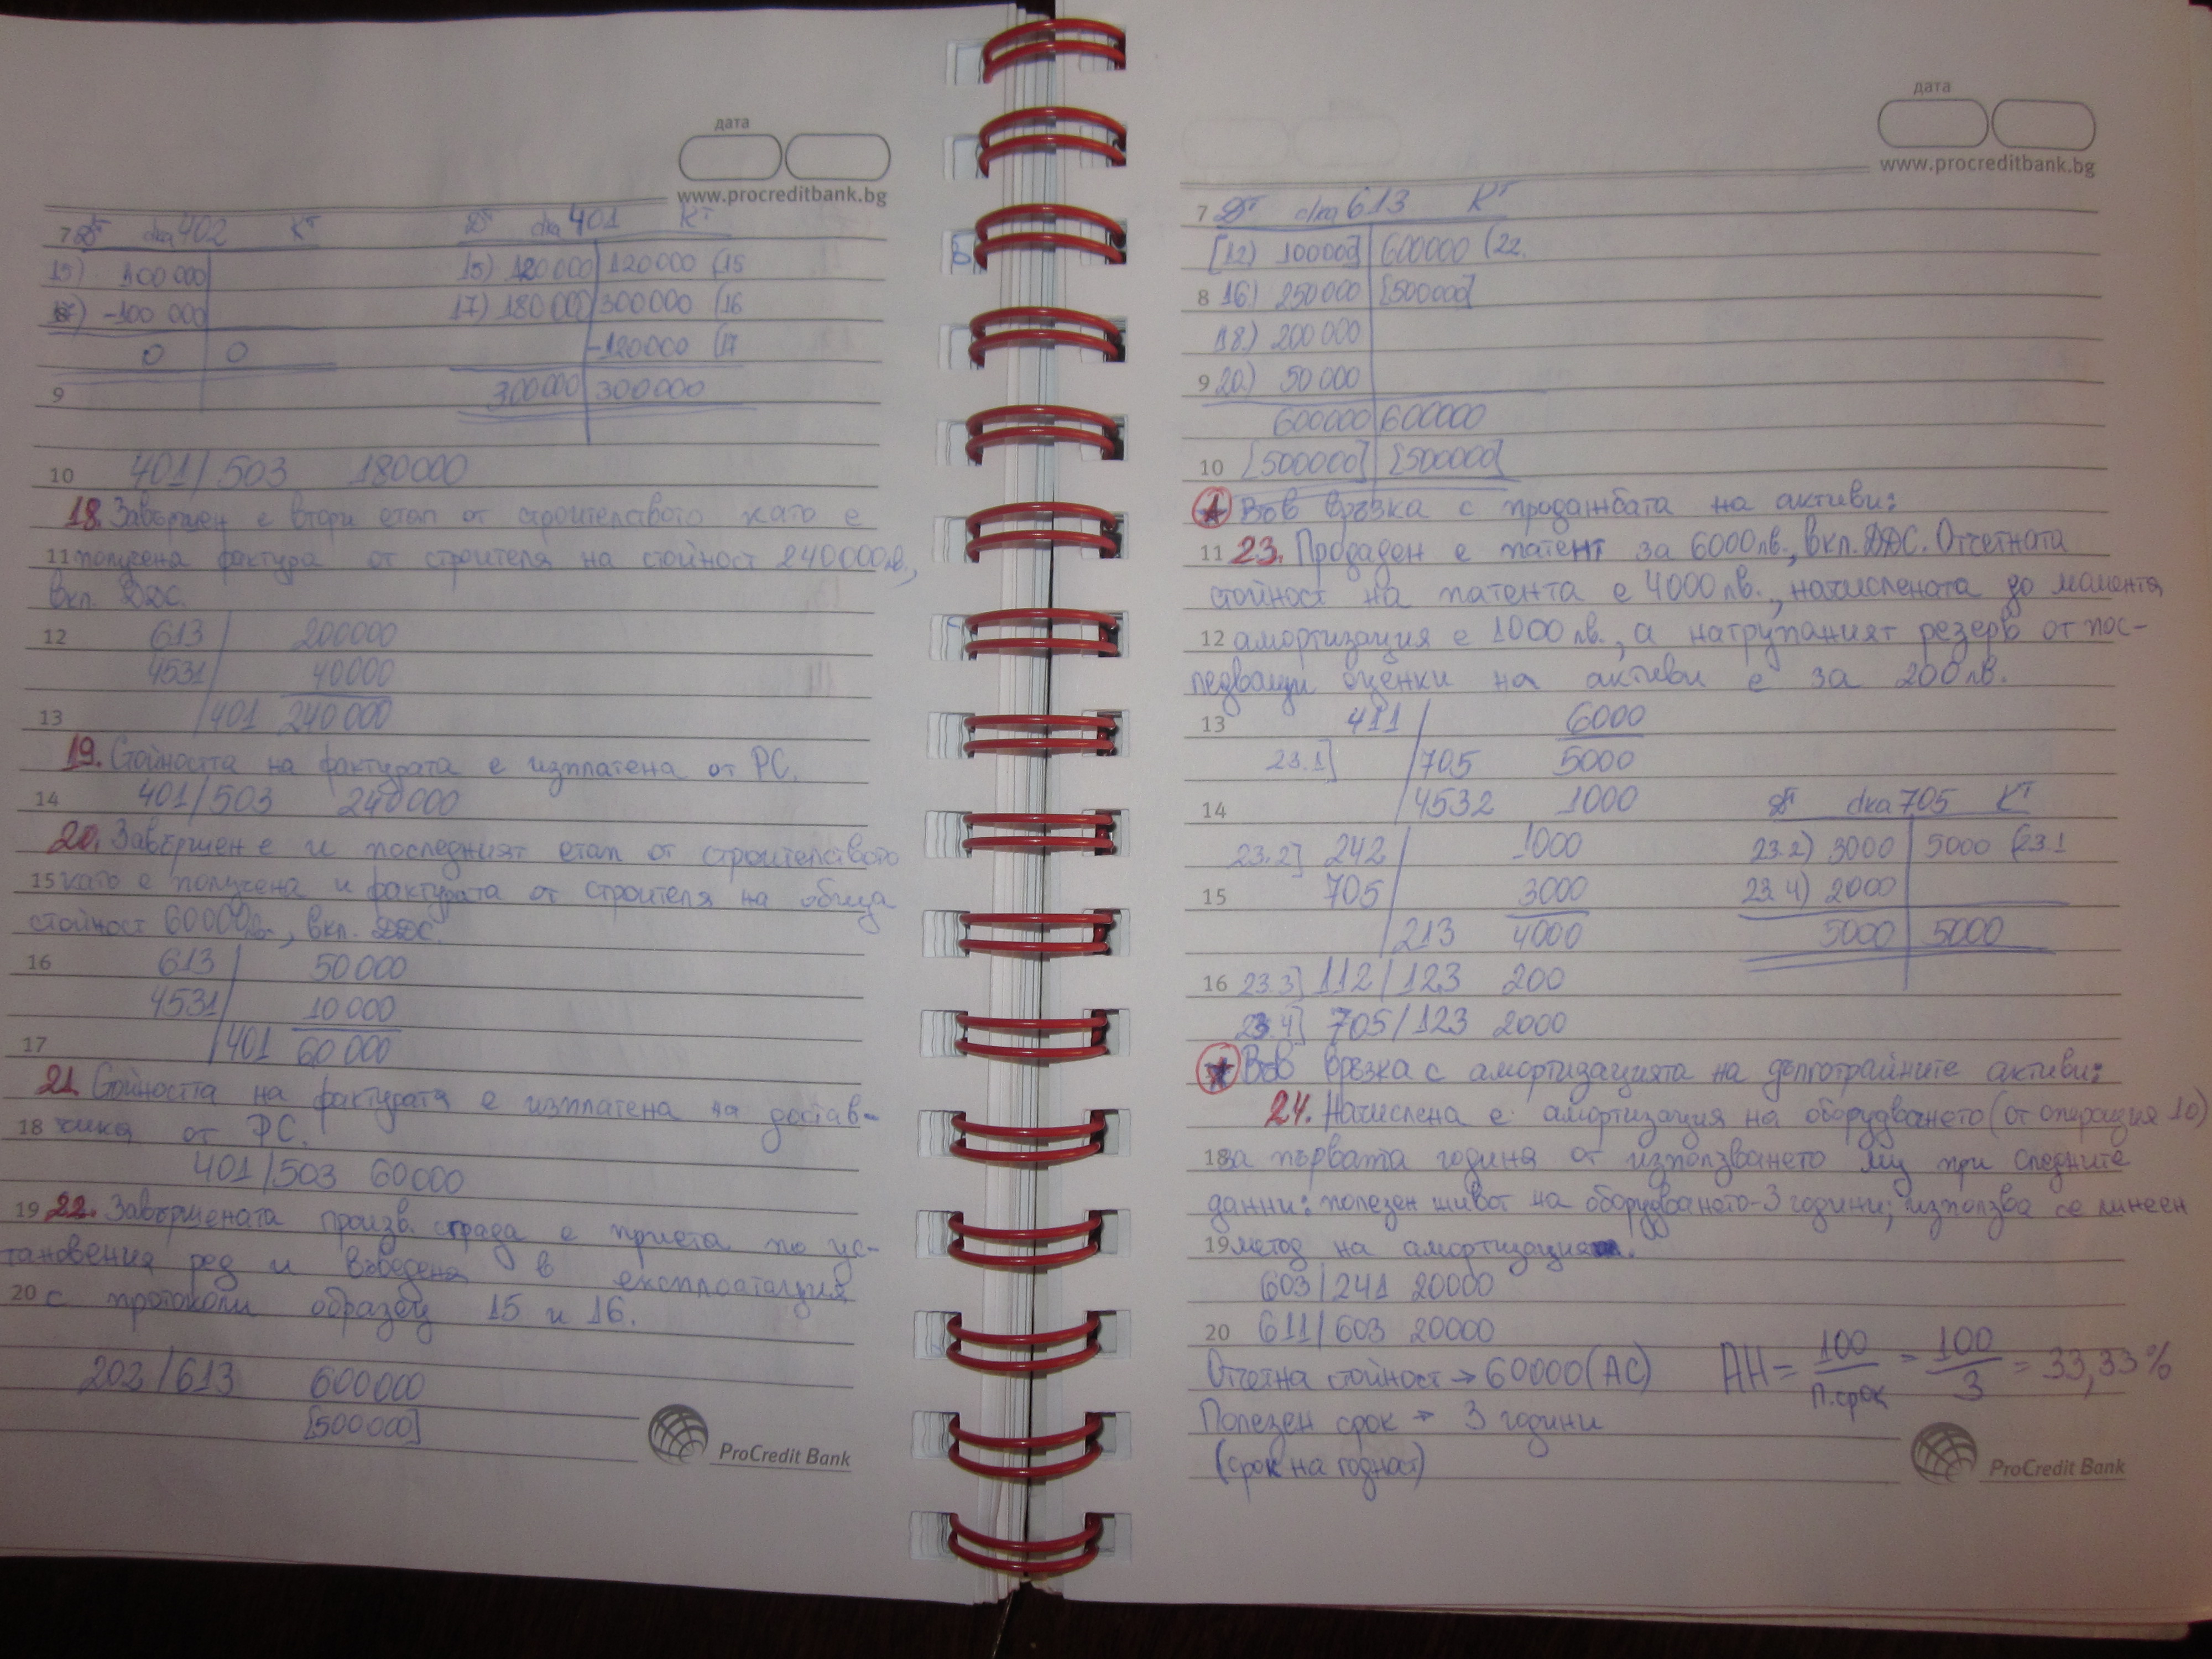 дата
www.procreditbank.bg
7 Дт с/ка 402 Кт Дт с/ка 401 Кт
15) 100 000 15) 120 000 120 000 (15
17) -100 000 17) 180 000 300000 (16
0 0 -120000 (17
9 300000 300000
10 401/503 180000
18. Завършен е втори етап от строителството като е
11 получена фактура от строителя на стойност 240000лв.,
вкл. ДДС.
12 613 / 200000
4531 / 40000
13 /401 240 000
19. Стойността на фактурата е изплатена от РС.
14 401/503 240000
20. Завършен е и последният етап от строителството
15 като е получена и фактурата от строителя на обща
стойност 60000лв., вкл. ДДС.
16 613 / 50000
4531 / 10 000
17 /401 60 000
21. Стойността на фактурата е изплатена на достав-
18 чика от РС.
401/503 60000
19 22. Завършената произв. сграда е приета по ус-
тановения ред и въведена в експлоатация
20 с протоколи образец 15 и 16.
203/613 600000
[500000]
ProCredit Bank
дата
www.procreditbank.bg
7 Дт с/ка 613 Кт
[12) 100000] 600000 (22.
8 16) 250000 [500000]
18.) 200000
9 20) 50000
600000 600000
10 [500000] [500000]
★ Във връзка с продажбата на активи:
11 23. Продаден е патент за 6000лв., вкл. ДДС. Отчетната
стойност на патента е 4000 лв., начислената до момента
12 амортизация е 1000 лв., а натрупаният резерв от пос-
ледващи оценки на активи е за 200лв.
13 411 / 6000
23.1] /705 5000
14 /4532 1000 Дт с/ка 705 Кт
23.2] 242 / 1000 23.2) 3000 5000 (23.1
15 705 3000 23.4) 2000
/213 4000 5000 5000
16 23.3] 112/123 200
23.4] 705/123 2000
★ Във връзка с амортизацията на дълготрайните активи:
24. Начислена е амортизация на оборудването (от операция 10)
18 за първата година от използването му при следните
данни: полезен живот на оборудването-3 години; използва се линеен
19 метод на амортизация.
603/241 20000
20 611/603 20000
Отчетна стойност → 60000 (АС) АН = 100/П.срок = 100/3 = 33,33%
Полезен срок → 3 години
(срок на годност)
ProCredit Bank